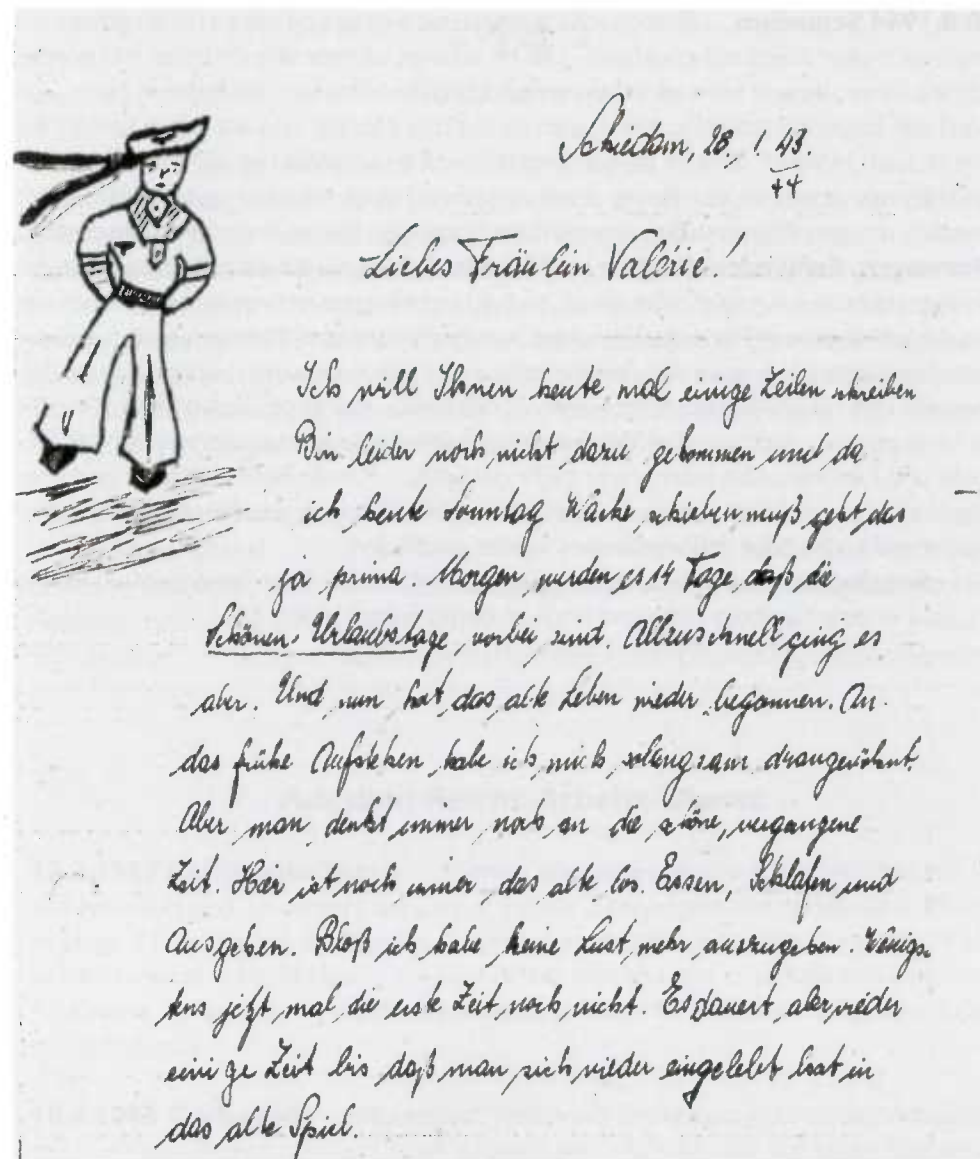 Schiedam, 28. 1. 43.
44
Liebes Fräulein Valerie!
Ich will Ihnen heute mal einige Zeilen schreiben
Bin leider noch nicht dazu gekommen und da
ich heute Sonntag Wache schieben muß geht das
ja prima. Morgen werden es 14 Tage daß die
Schönen Urlaubstage vorbei sind. Allzuschnell ging es
aber. Und nun hat das alte Leben wieder begonnen. An
das frühe Aufstehen habe ich mich solangsam drangewöhnt.
Aber man denkt immer noch an die schöne, vergangene
Zeit. Hier ist noch immer das alte los. Essen, Schlafen und
Ausgehen. Bloß ich habe keine Lust mehr auszugehen. Wenigs-
tens jetzt mal die erste Zeit noch nicht. Es dauert aber wieder
einige Zeit bis daß man sich wieder eingelebt hat in
das alte Spiel.